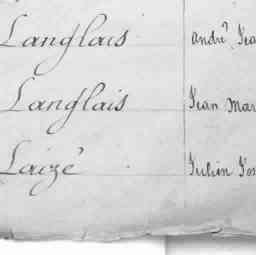 Langlais André Jea
Langlais Jean Mar
Laizé Julien Jos